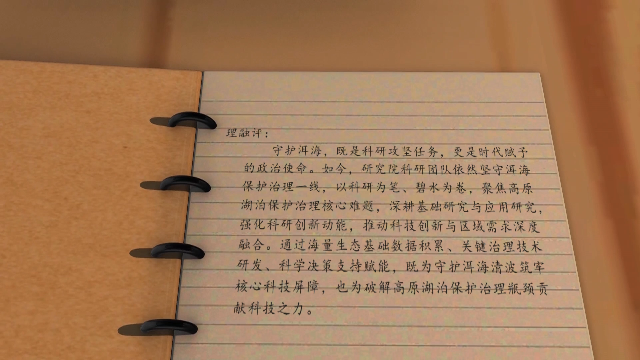 理融评：
守护洱海，既是科研攻坚任务，更是时代赋予
的政治使命。如今，研究院科研团队依然坚守洱海
保护治理一线，以科研为笔、碧水为卷，聚焦高原
湖泊保护治理核心难题，深耕基础研究与应用研究，
强化科研创新动能，推动科技创新与区域需求深度
融合。通过海量生态基础数据积累、关键治理技术
研发、科学决策支持赋能，既为守护洱海清波筑牢
核心科技屏障，也为破解高原湖泊保护治理瓶颈贡
献科技之力。